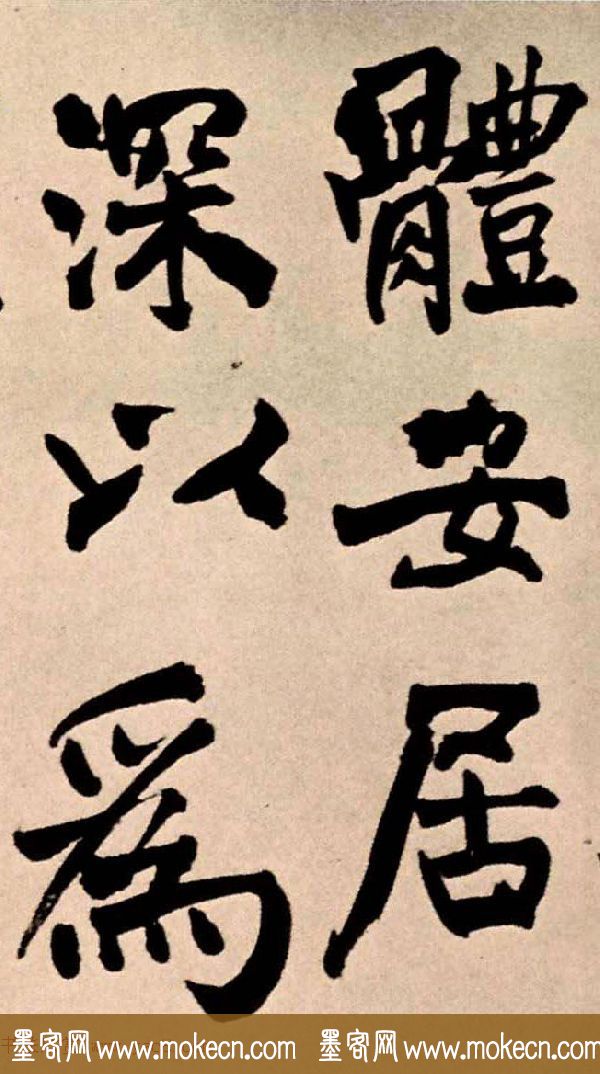 體安居
深以為
墨客网 www.mokecn.com 墨客网 www.mokecn.com